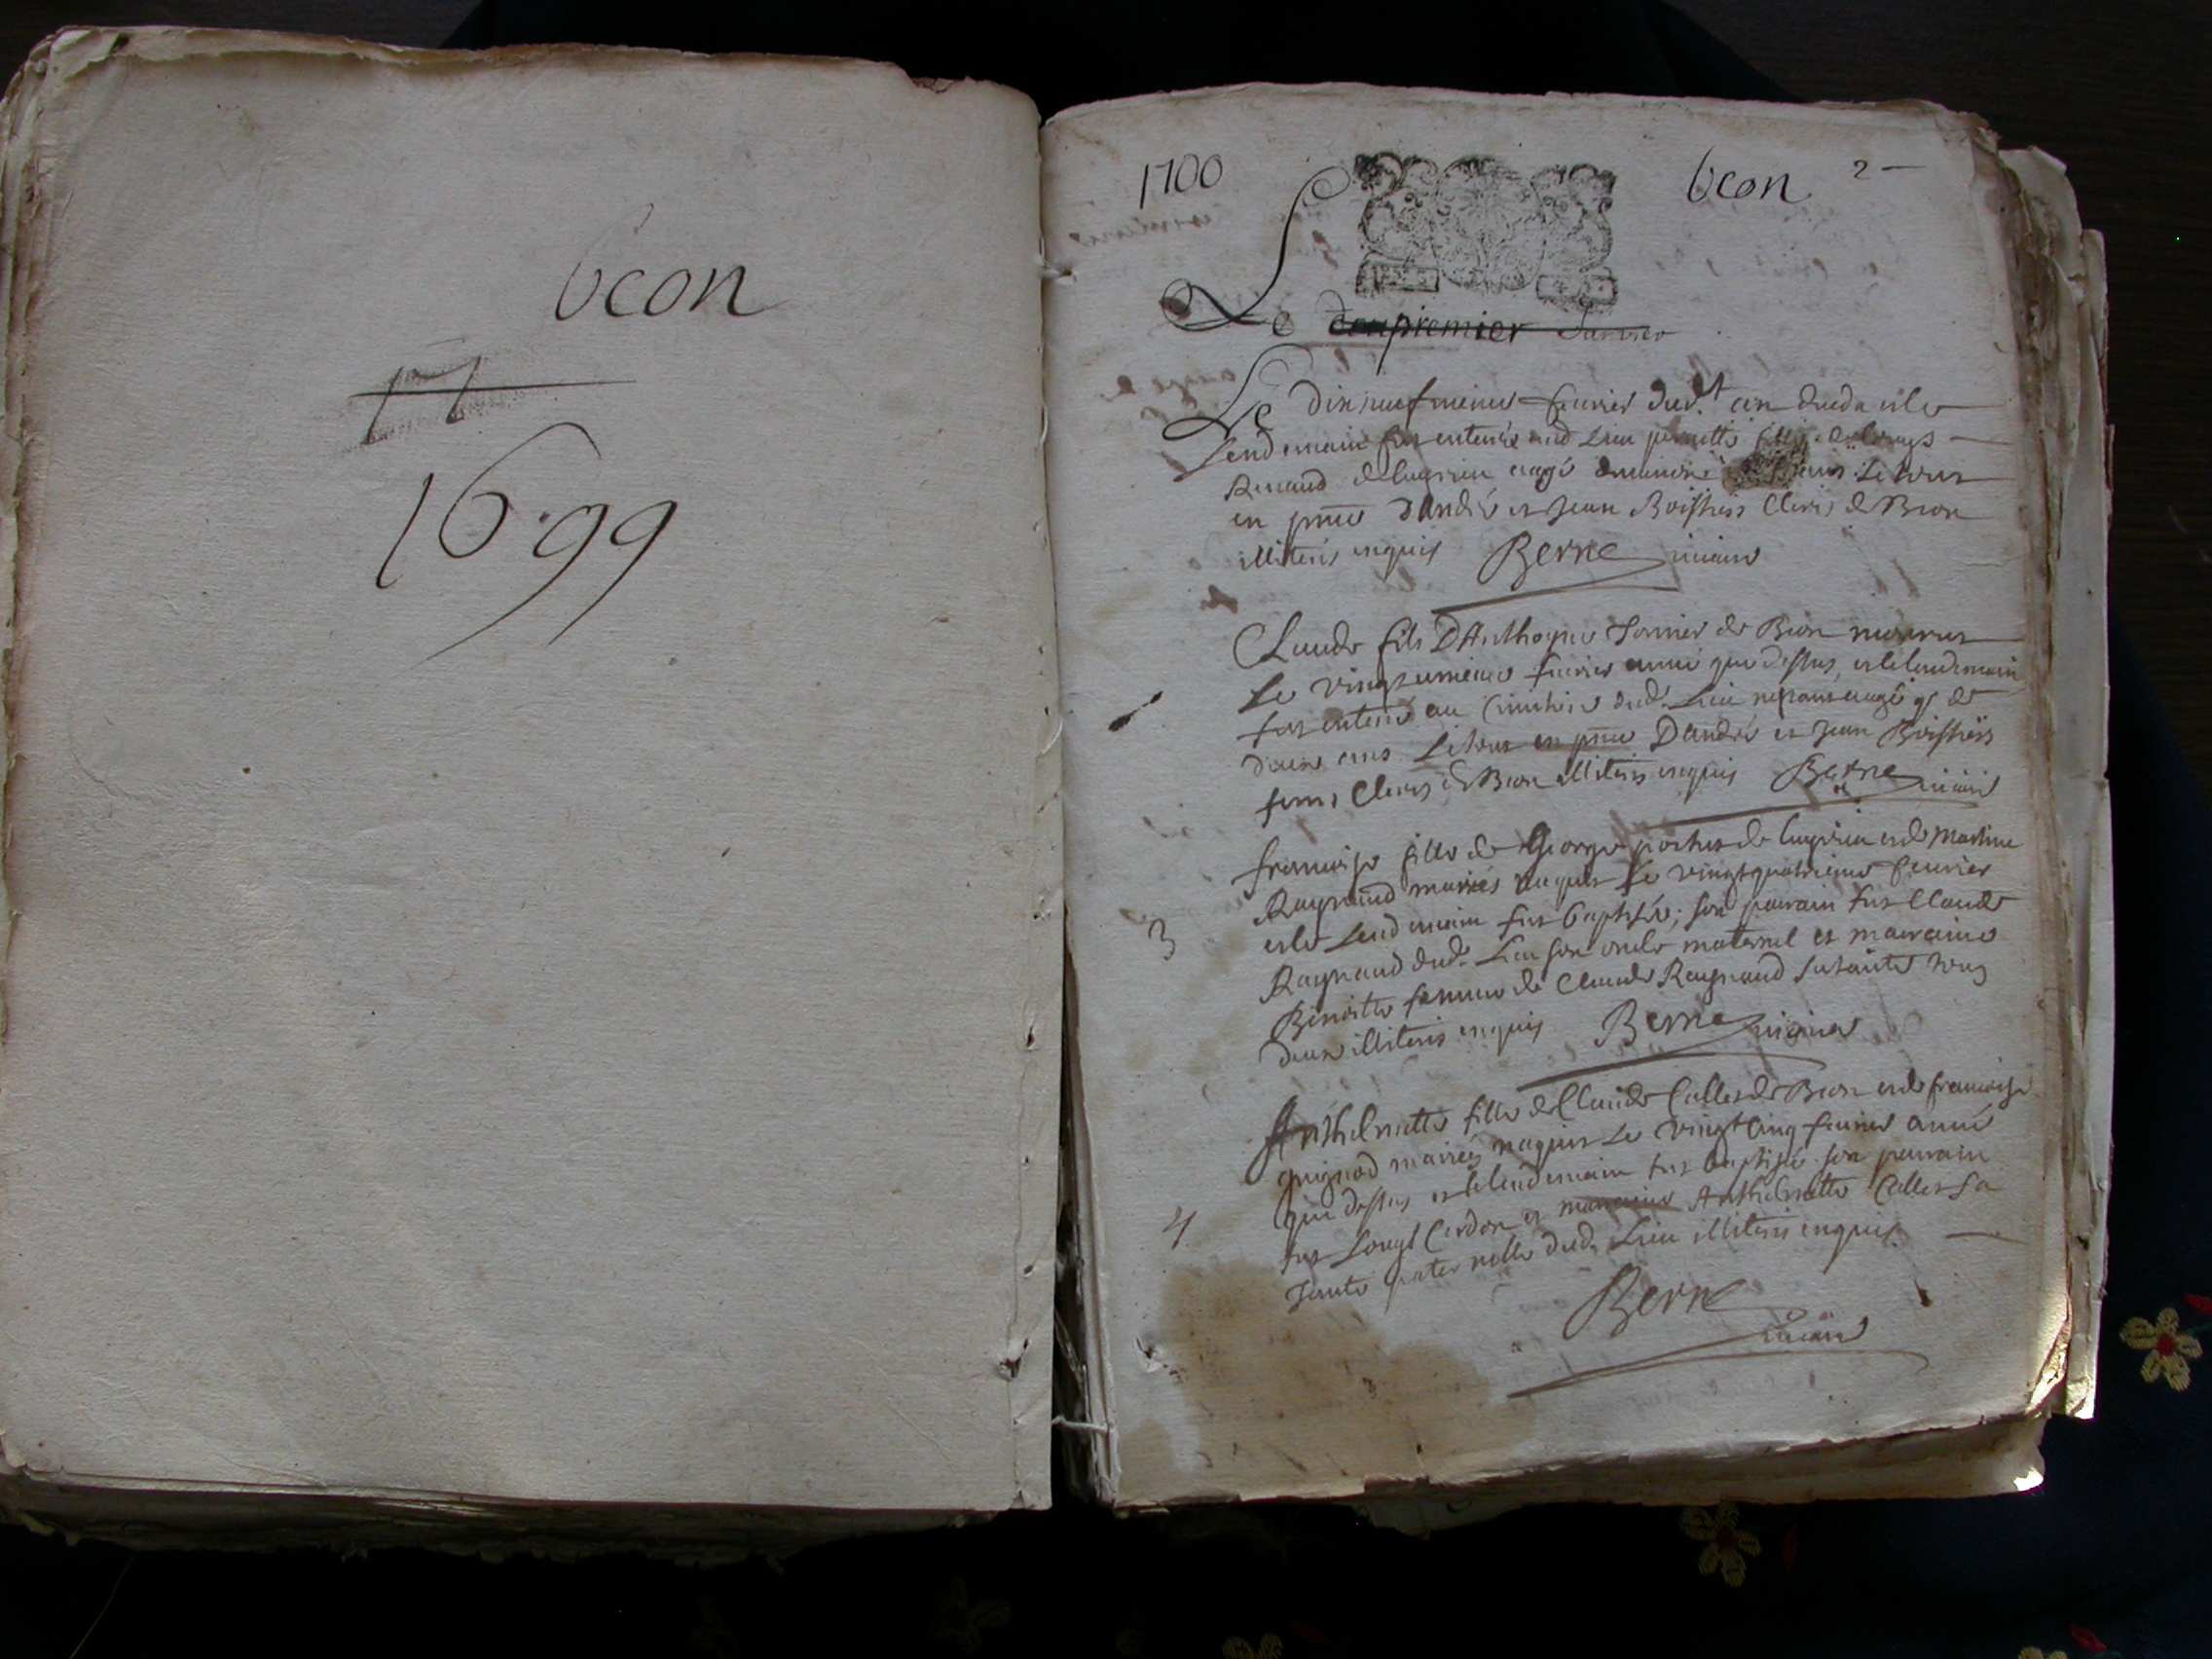 bcon
17
1699
1700
bcon 2
Le premier Janvier
Le dixneufvieme feurier dud.t an deceda et le
Lendemain fut enterré aud Lieu fille de
Renaud de Luyrieu aagé ans Le tout
en pnce D'André et Jean Boissiers Clercs de Beon
illiterés enquis Berne vicaire
Claude fils D'Anthoyne de Beon mourut
Le vingt unieme feurier année que dessus, et le lendemain
fut enterré au Cimitiere dud. Lieu aagé de
deux ans Le tout en pnce D'André et Jean Boissiers
Clercs de Beon illiterés enquis Berne vicaire
3
francoise fille de George de Luyrieu et de Martine
Raynaud mariés naquit Le vingtquatrieme feurier
et le Lendemain fut baptisée; son parrain fut Claude
Raynaud dud. Lieu son oncle maternel et marraine
Benoitte femme de Claude Raynaud sa tante tous
deux illiterés enquis Berne vicaire
4
Anthelmette fille de Claude Callet de Beon et de francoise
guignod mariés naquit Le vingt cinq feurier année
que dessus et le lendemain fut baptisée son parrain
fut Louys Cerdon et marraine Anthelmette Callet sa
tante paternelle dud. Lieu illiterés enquis
Berne
vicaire